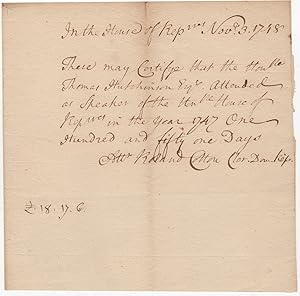 In the House of Rep.ves Nov.r 3. 1748
These may Certifye that the Hon.ble
Thomas Hutchinson Esq.r Attended
as Speaker of the Hon.ble House of
Rep.ves in the Year 1747 One
Hundred and fifty one Days
Att.r Roland Cotton Cler. Dom. Rep.
£. 18. 17. 6.